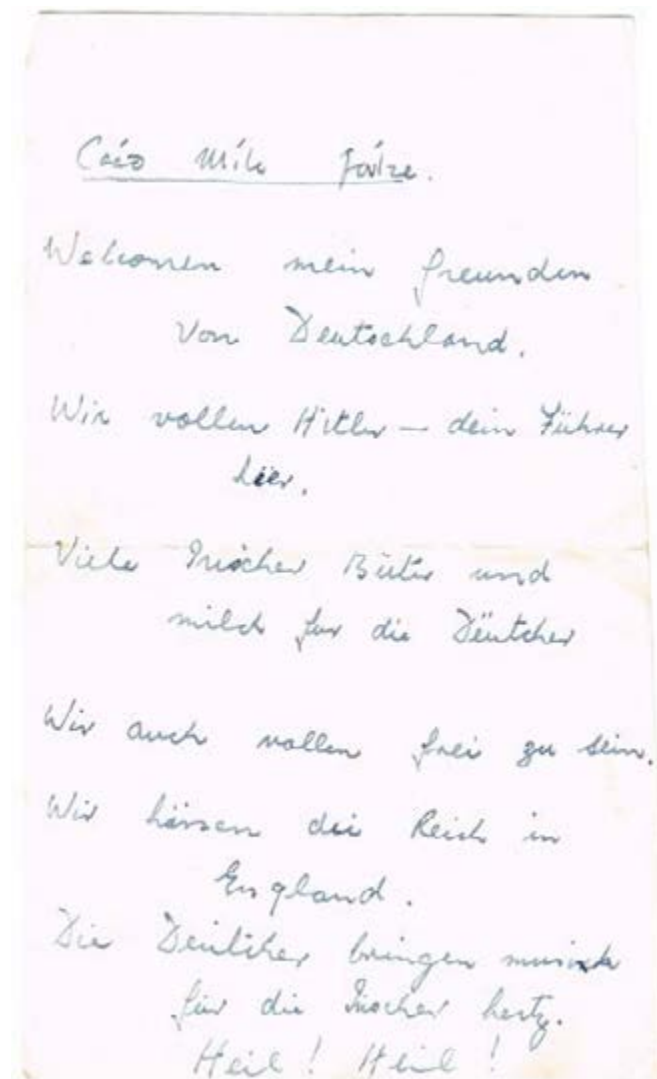 Céad Míle Fáilte.
Welcomen mein freunden
von Deutschland.
Wir vollen Hitler – dein Führer
hier.
Viele Irischer Büter und
milch fur die Dëutcher
Wir auch vollen frei zu sein.
Wir hässen die Reich in
England.
Die Deutcher bringen musick
für die Irischer hertz.
Heil! Heil!